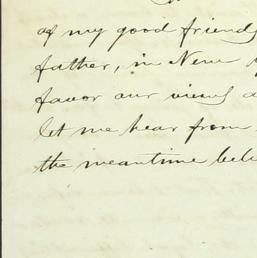 of my good friends
father, in New
favor our views
let me hear from
the meantime